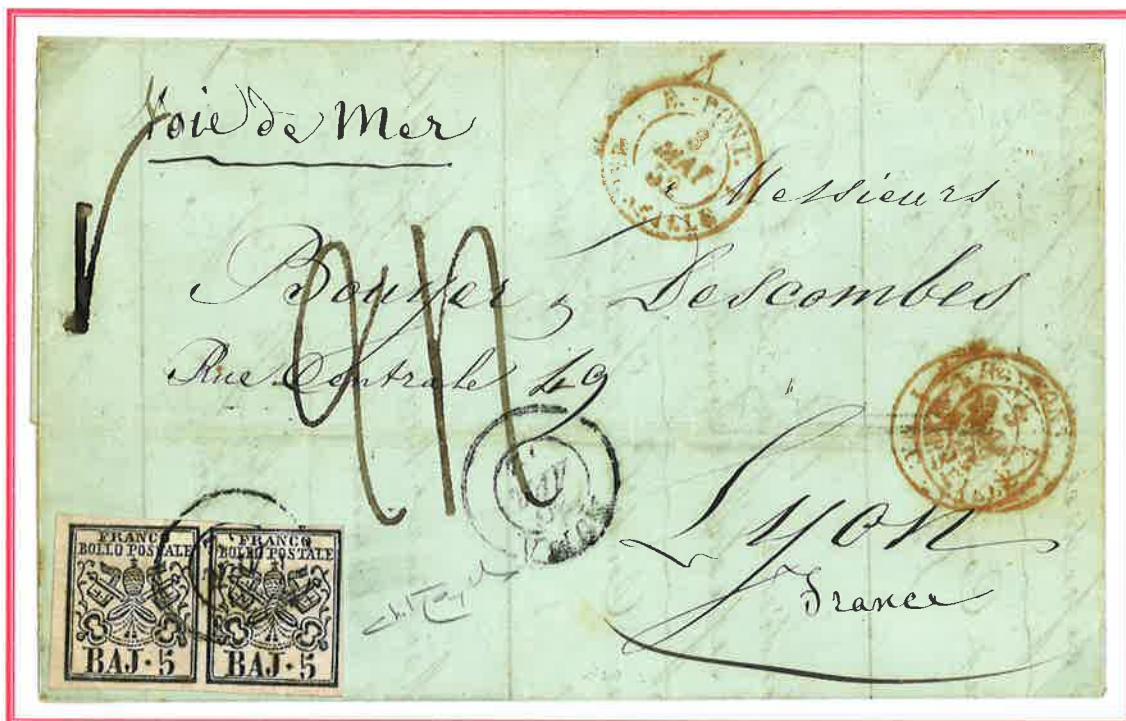 Voie de Mer
E. PONT.
3
MAI
Messieurs
Bouyer & Descombes
Rue Centrale 49
Lyon
France
FRANCO
BOLLO POSTALE
BAJ. 5
FRANCO
BOLLO POSTALE
BAJ. 5